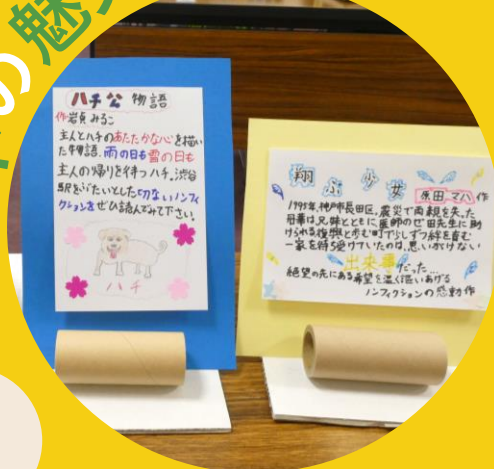 の魅
ハチ公物語
作 岩貞 みるこ
主人とハチのあたたかな心を描い
た物語。雨の日も雪の日も
主人の帰りを待つハチ。渋谷
駅をぶたいとした切ないノンフィ
クションをぜひ読んでみて下さい。
ハチ
翔ぶ少女
原田 マハ 作
1995年、神戸市長田区。震災で両親を失った
は兄妹とともに医師のゼロ先生に助
けられる。復興と歩む町で少しずつ絆を育む
一家を待ち受けていたのは、思いがけない
出来事だった…
絶望の先にある希望を温く謳いあげる
ノンフィクションの感動作